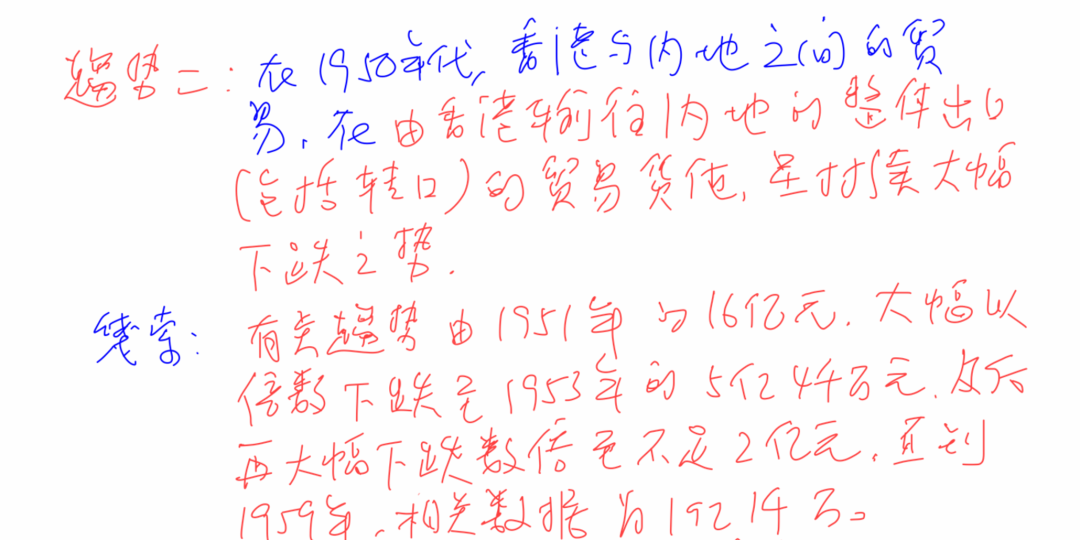 趨势二: 在1950年代, 香港与内地之间的貿
易, 在由香港输往内地的整体出口
(包括转口)的貿易货值, 呈持续大幅
下跌之势.
线索: 有关趨势由1951年的16亿元, 大幅以
倍数下跌至1953年的5亿4千万元, 及后
再大幅下跌数倍至不足2亿元, 直到
1959年, 相关数据为1亿14万。